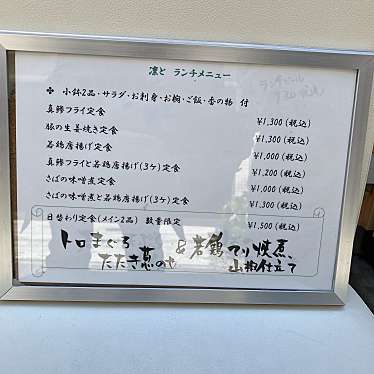 凛と ランチメニュー
❖ 小鉢2品・サラダ・お刺身・お椀・ご飯・香の物 付
真鯵フライ定食 ¥1,300(税込)
豚の生姜焼き定食 ¥1,300(税込)
若鶏唐揚げ定食 ¥1,000(税込)
真鯵フライと若鶏唐揚げ(3ケ)定食 ¥1,200(税込)
さばの味噌煮定食 ¥1,000(税込)
さばの味噌煮と若鶏唐揚げ(3ケ)定食 ¥1,300(税込)
日替わり定食(メイン2品) 数量限定 ¥1,500(税込)
トロまぐろ &若鶏てり焼
たたき 山椒仕立て